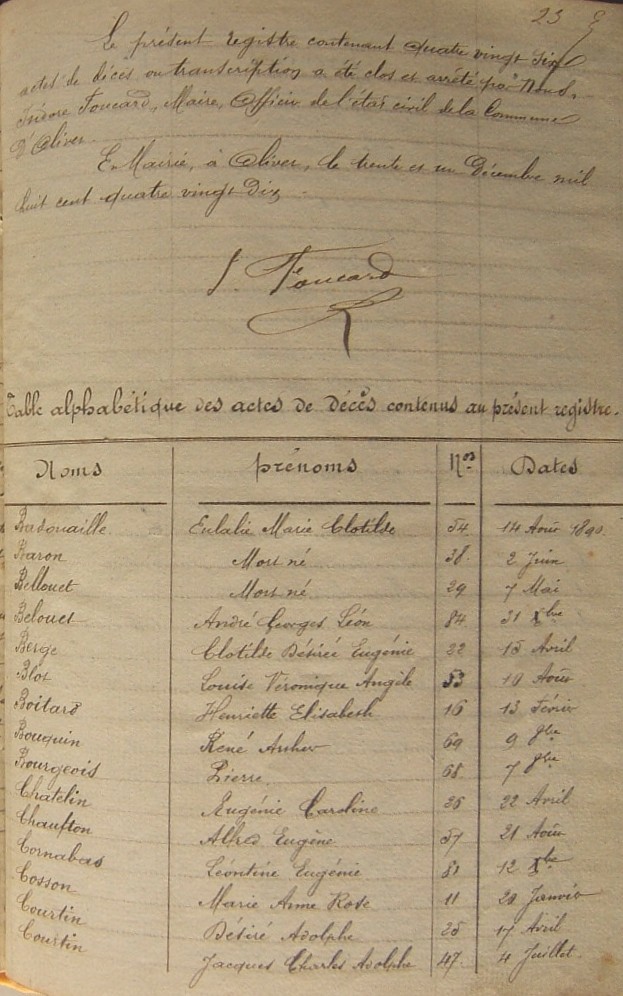 23
Le présent registre contenant quatre vingt dix
actes de décès ou transcription a été clos et arrêté par Nous,
Isidore Foucard, Maire, Officier de l'état civil de la Commune
D'Olivet.
En Mairie, à Olivet, le trente et un Décembre mil
huit cent quatre vingt Dix.
I. Foucard
Table alphabétique des actes de décès contenus au présent registre.
Noms prénoms Nos Dates
Badouaille Eulalie Marie Clotilde 54 14 Août 1890.
Baron Mort né 38 2 Juin
Bellouet Mort né 29 7 Mai
Belouet André Georges Léon 84 31 Xbre
Berge Clotilde Désirée Eugénie 22 15 Avril
Blot Louise Véronique Angèle 53 10 Août
Boitard Henriette Elisabeth 16 13 Février
Bouquin René 69 9 9bre
Bourgeois Pierre 68 7 9bre
Chatelin Eugénie Caroline 26 22 Avril
Chaufton Alfred Eugène 57 21 Août
Cornabas Léontine Eugénie 81 12 Xbre
Cosson Marie Anne Rose 11 29 Janvier
Courtin Désiré Adolphe 25 17 Avril
Courtin Jacques Charles Adolphe 47 4 Juillet.